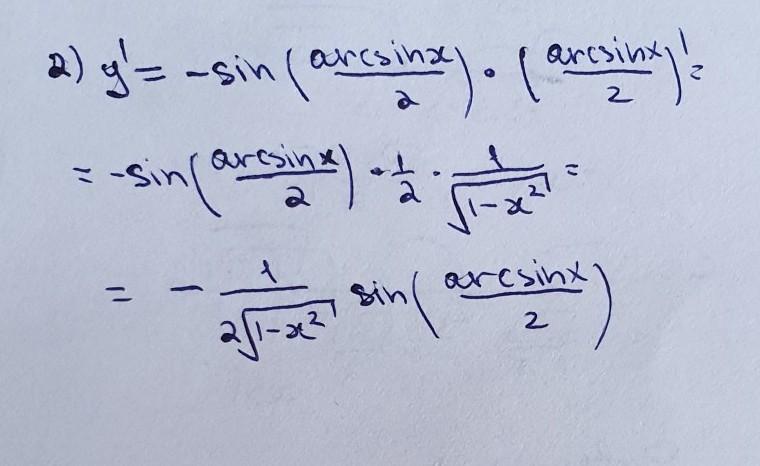 2) y' = -sin(arcsinx/2) · (arcsinx/2)' =
= -sin(arcsinx/2) · 1/2 · 1/√(1-x²) =
= - 1/(2√(1-x²)) sin(arcsinx/2)